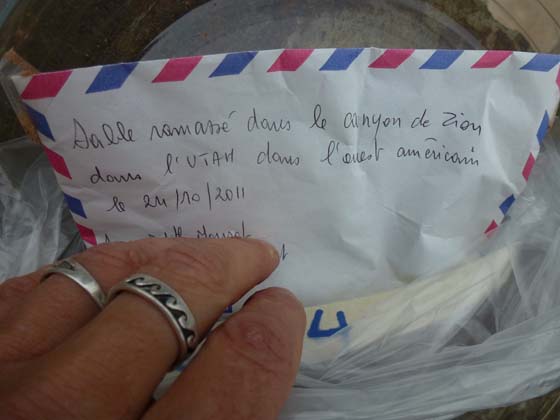 Sable ramassé dans le canyon de Zion
dans l'UTAH dans l'ouest américain
le 24/10/2011